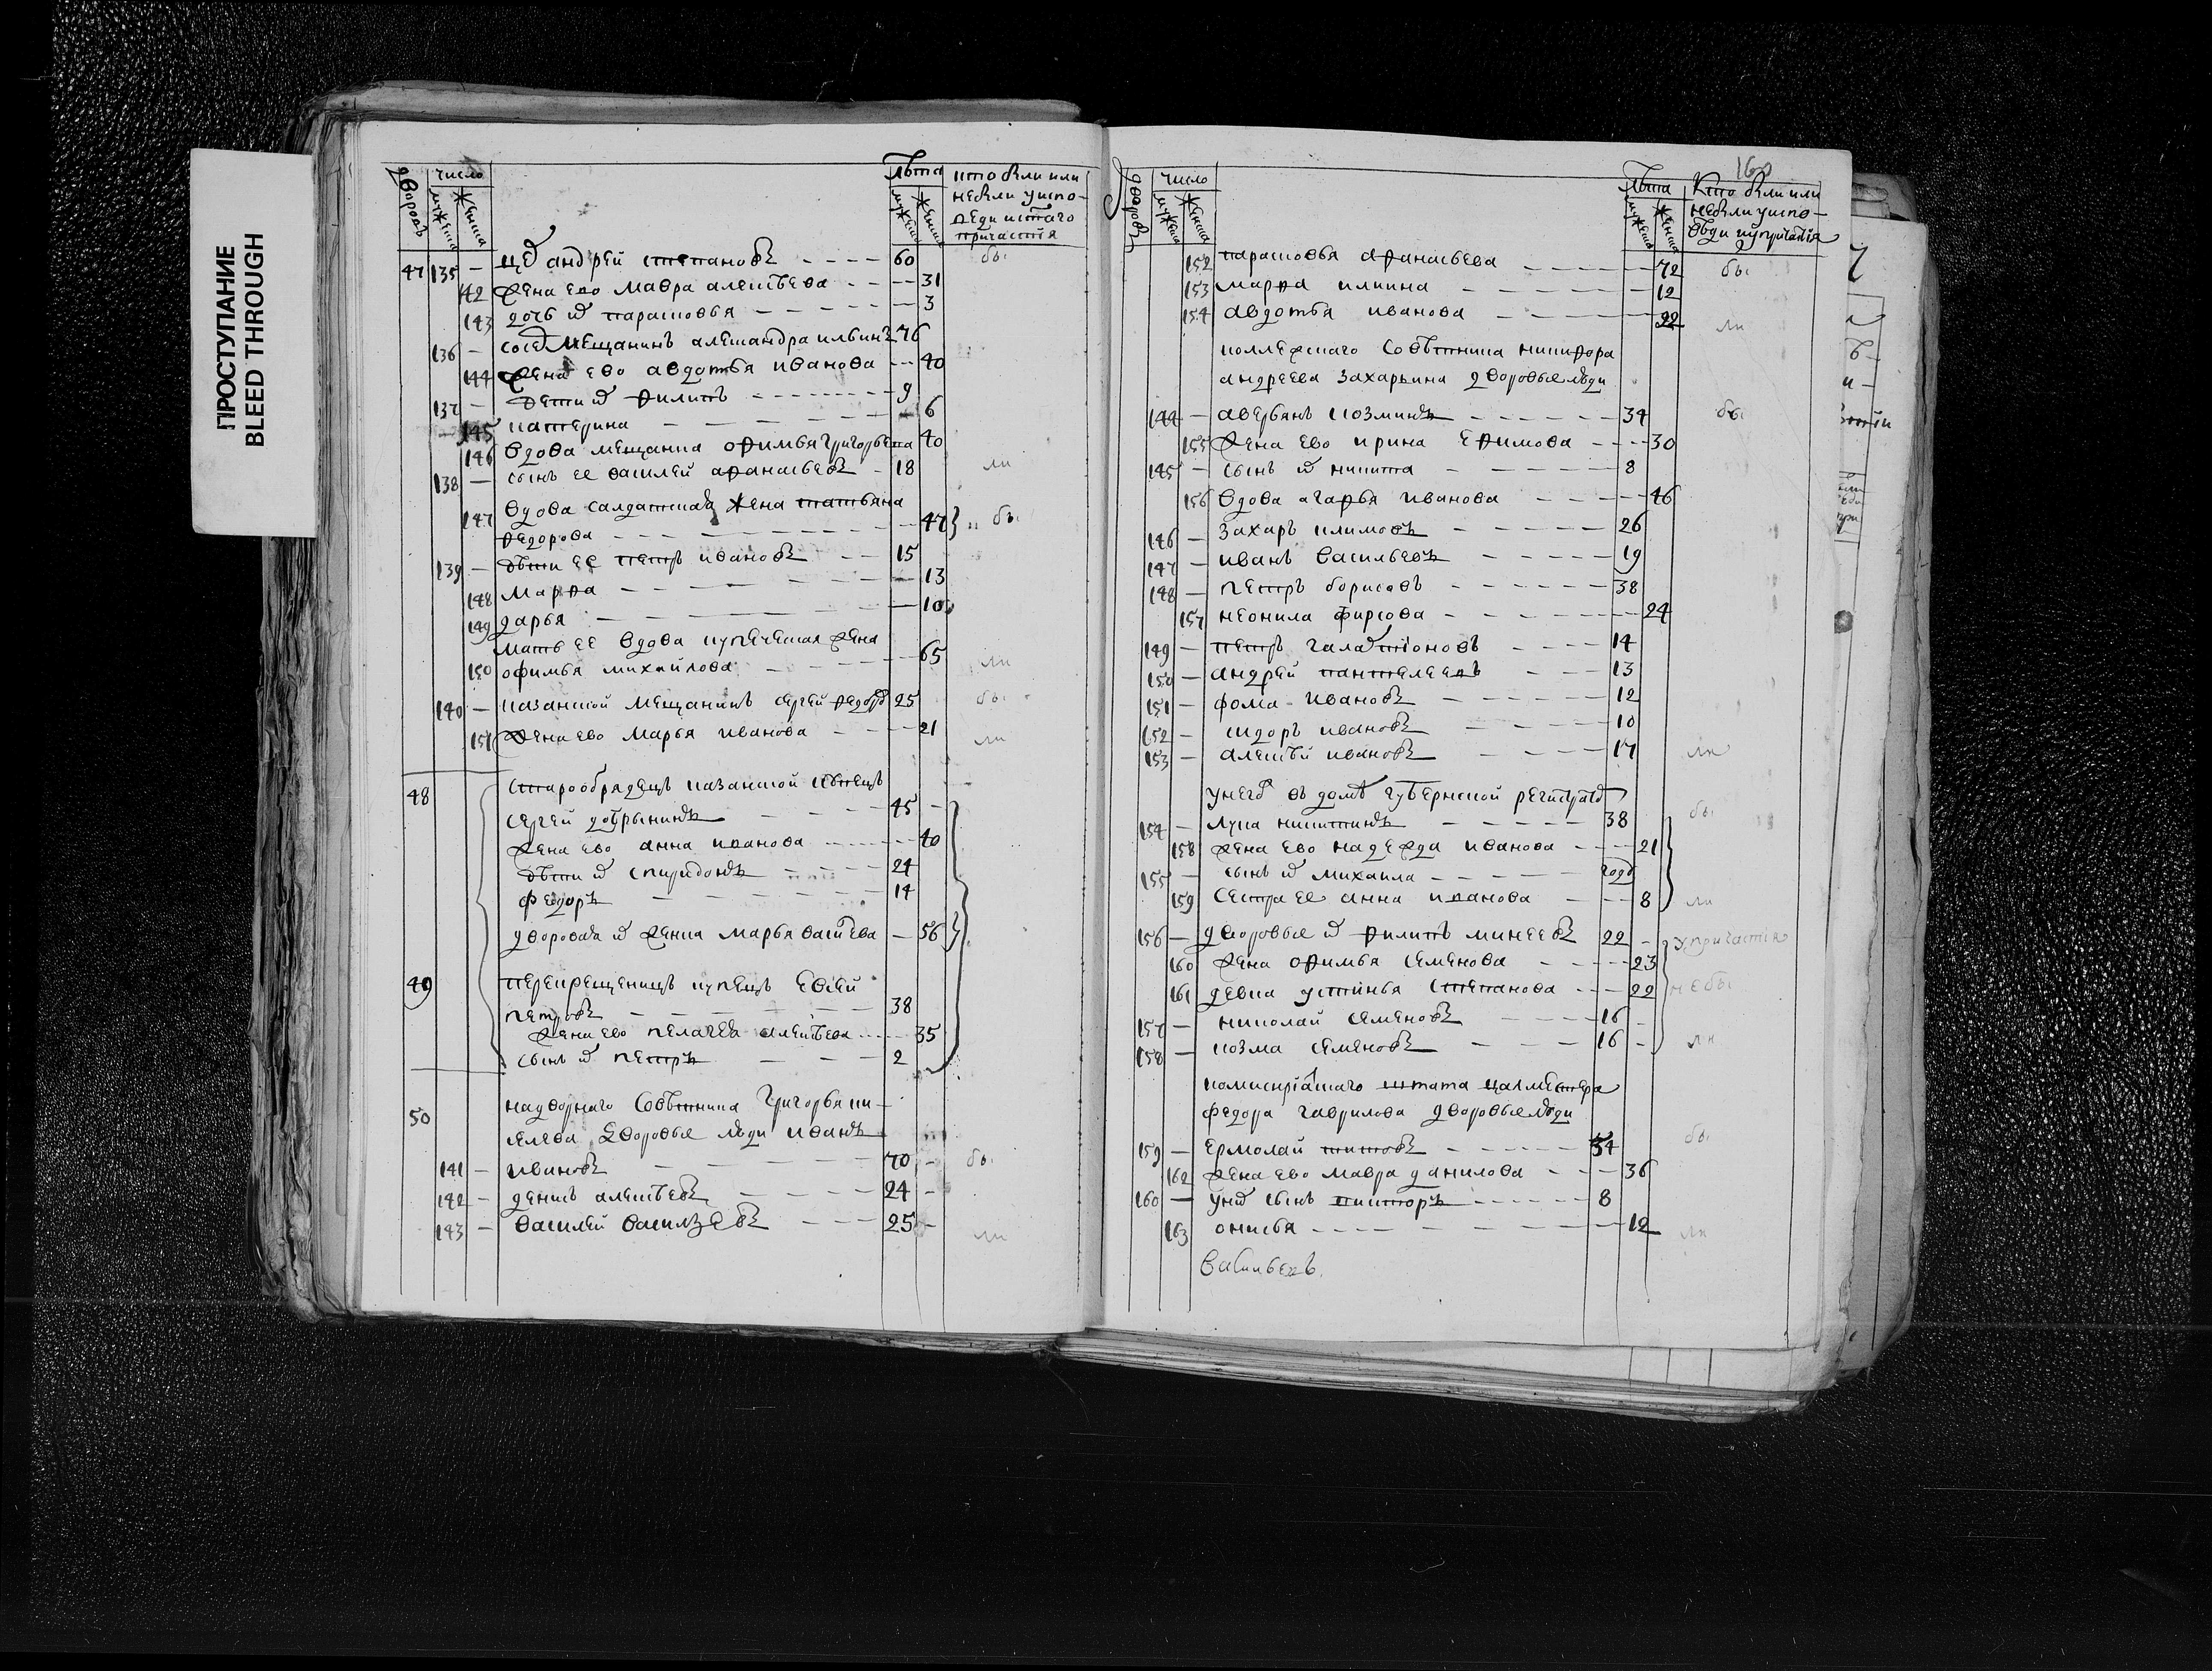 ПРОСТУПАНИЕ
BLEED THROUGH
дворовъ число мужеска женска лѣта мужеска женска кто были или
небыли уиспо-
веди истаго
причастія
47 135 — андрей степановъ 60 бы
142 жена ево мавра алексѣева 31
143 дочь их парасковья 3
136 — мещанинъ александра ильинъ 76
144 жена ево авдотья иванова 40
137 — дети их филипъ 9
145 катерина 6
146 вдова мещанка офимья григорьева 40
138 — сынъ ее василей афанасьевъ 18 ли
147 вдова салдатская жена татьяна
федорова 47 бы
139 — дѣти ее петръ ивановъ 15
148 марфа 13
149 дарья 10
мать ее вдова купеческая жена
150 офимья михайлова 65 ли
140 — казанской мещанинъ сергей федоров 25 бы
151 жена ево марья иванова 21 ли
48 старообрядецъ казанской купецъ
сергей добрынинъ 45
жена ево анна иванова 40
дѣти их спиридонъ 24
федоръ 14
дворовая их женка марья васильева 56
49 перекрещеницъ купецъ евсей
петровъ 38
жена ево пелагея алексѣева 35
сынъ их петръ 2
50 надворнаго совѣтника григорья ки-
селева дворовые люди иванъ
141 — ивановъ 70 бы
142 — денисъ алексѣевъ 24
143 — василей васильевъ 25 ли
160
дворовъ число мужеска женска лѣта мужеска женска кто были или
небыли уиспо-
вѣди ипричастія
152 парасковья афанасьева 72 бы
153 марфа илиина 12
154 авдотья иванова 22 ли
коллежскаго совѣтника никифора
андреева захарьина дворовые люди
144 — аверьянъ козминъ 34 бы
155 жена ево ирина ефимова 30
145 — сынъ их никита 8
156 вдова агафья иванова 46
146 — захаръ климовъ 26
147 — иванъ васильевъ 19
148 — петръ борисовъ 38
157 неонила фирсова 24
149 — петръ галактіоновъ 14
150 — андрей пантелеевъ 13
151 — фома ивановъ 12
152 — сидоръ ивановъ 10
153 — алексѣй ивановъ 17 ли
унего въ домѣ губернской регистратор
154 — лука никитинъ 38 бы
158 жена ево надежда иванова 21
155 — сынъ их михаила годъ
159 сестра ее анна иванова 8 ли
156 — дворовые их филипъ минеевъ 22 упричастія
160 жена офимья семенова 23
161 девка устинья степанова 22 небы
157 — николай семеновъ 16
158 — козма семеновъ 16 ли
комискріатскаго штата цалмейстера
федора гаврилова дворовые люди
159 — ермолай титовъ 34 бы
162 жена ево мавра данилова 36
160 — уних сынъ викторъ 8
163 онисья 12 ли
васильевъ